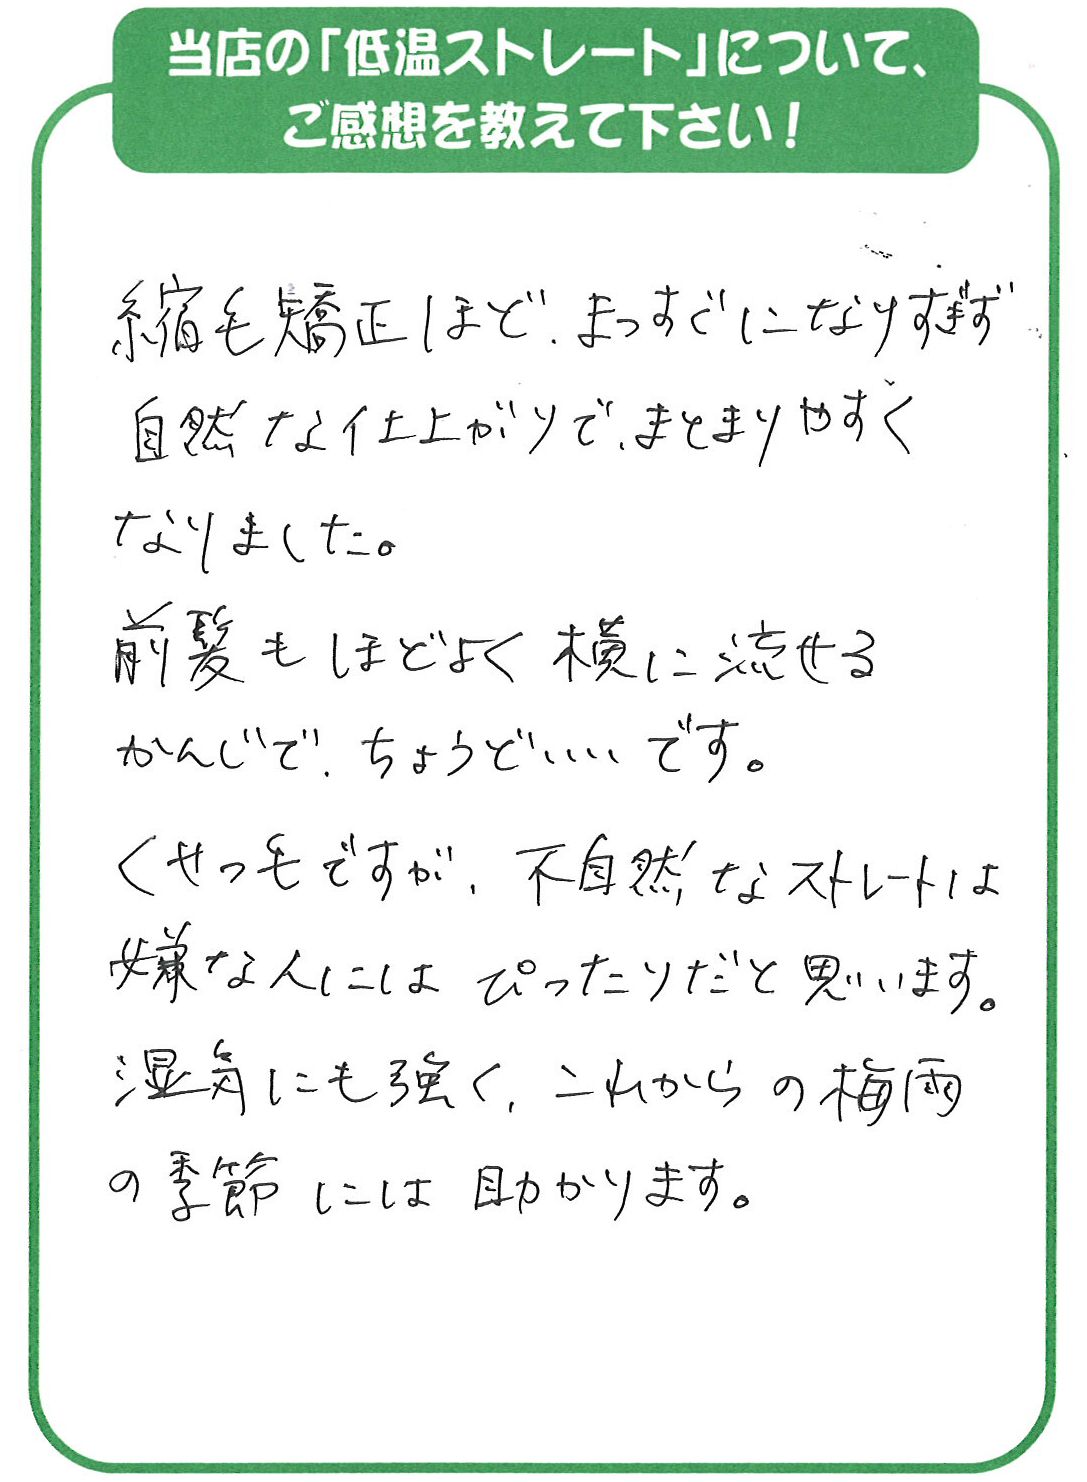 当店の「低温ストレート」について、
ご感想を教えて下さい！
縮毛矯正ほど、まっすぐになりすぎず
自然な仕上がりで、まとまりやすく
なりました。
前髪もほどよく横に流せる
かんじで、ちょうどいいです。
くせっ毛ですが、不自然なストレートは
嫌な人にはぴったりだと思います。
湿気にも強く、これからの梅雨
の季節には助かります。